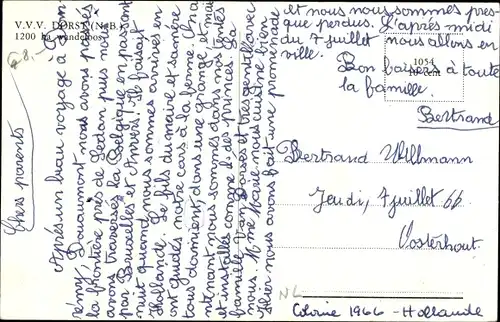 V.V.V. DORST (N.B.)
1200 ha wandelbos
Chers parents
Après un beau voyage à Dom
rémy, Douaumont, nous avons passés
la frontière près de Sedan puis nous
avons traversés la Belgique en passant
par Bruxelles et Anvers. Il faisait
nuit quand nous sommes arrivés en
Hollande. Le fils du maire et sa mère
ont guidés notre cars à la ferme. On a
tous dormient, dans une grange, et mai
ntenant nous sommes dans nos tentes
et installés comme des princes. La
famille Van est très gentille avec
nous. Mme Marie nous cuit bien
Hier nous avons fait une promenade
et nous nous sommes pres
que perdus. L'après midi
du 7 juillet nous allons en
ville.
Bon baisers à toute
la famille.
Bertrand
1054
Bertrand Willmann
Jeudi, 7 juillet 66
Oosterhout
NL
Colonie 1966 - Hollande